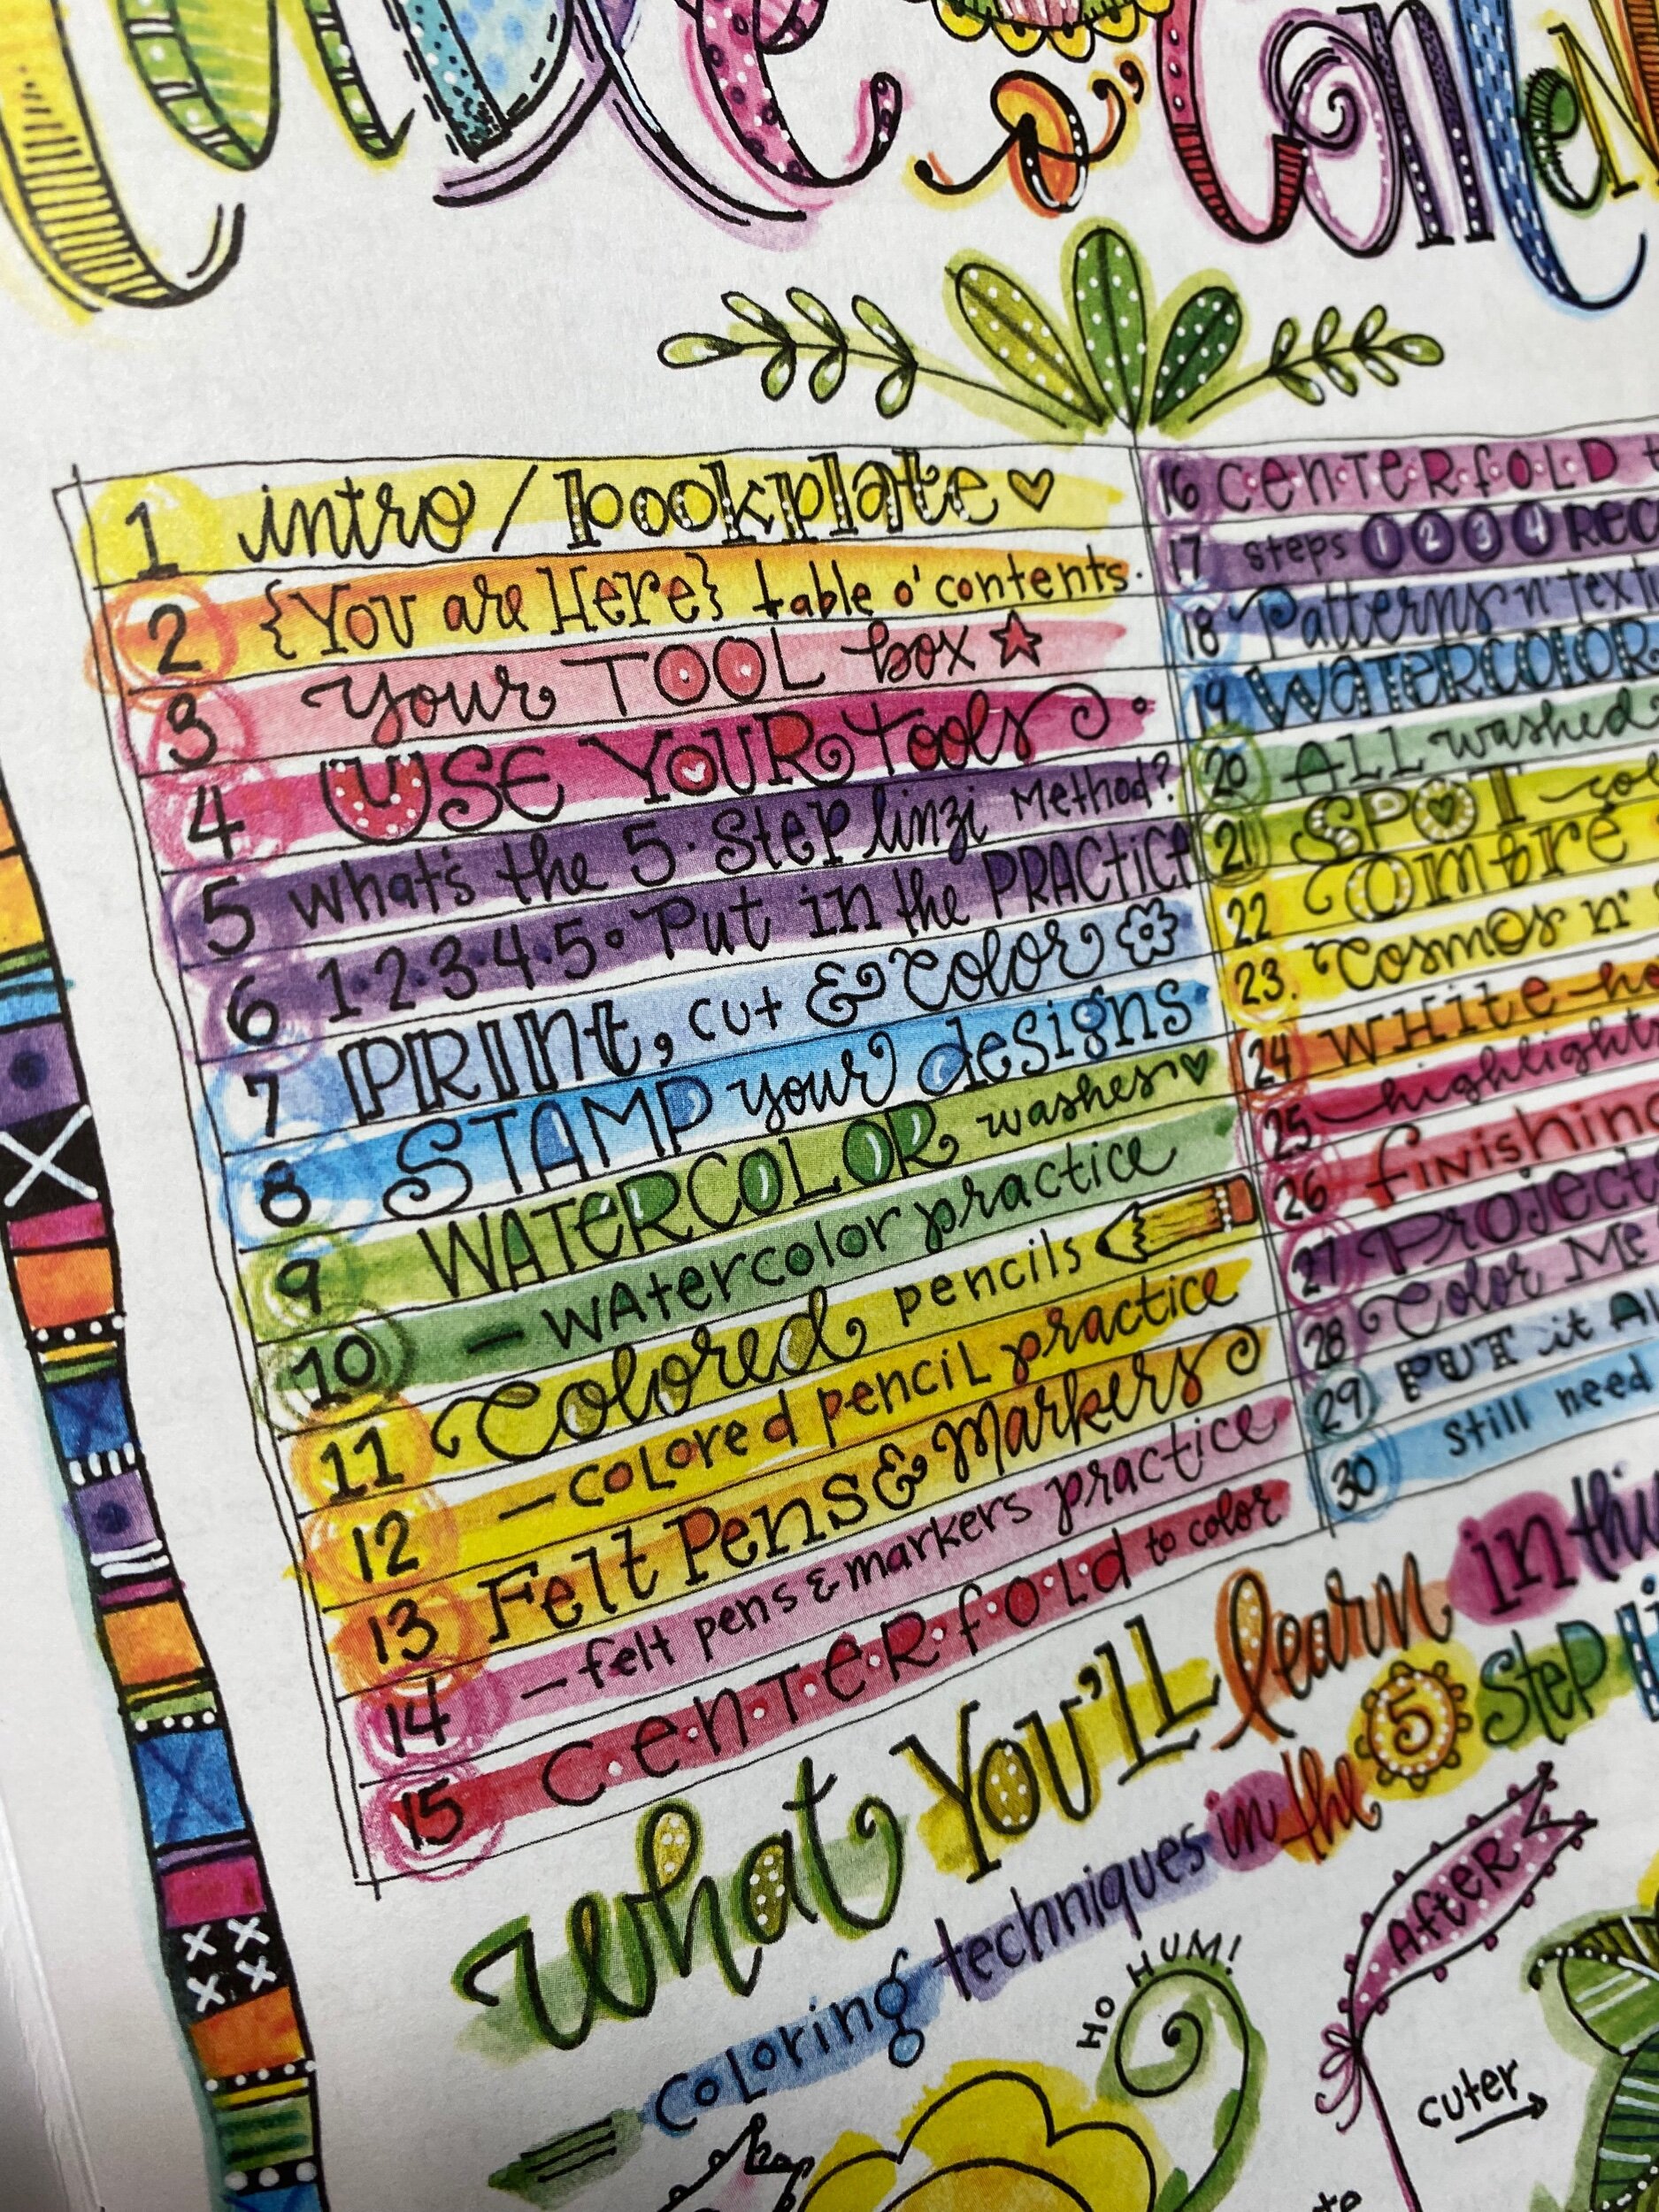 o' Conten
1 intro / bookplate
2 {You are Here} table o' contents.
3 your TOOL box
4 USE YOUR Tools
5 what's the 5. Step linzi Method?
6 1.2.3.4.5. Put in the PRACTICE
7 PRINT, cut & Color
8 STAMP your designs
9 WATERCOLOR washes
10 - WAtercolor practice
11 Colored pencils
12 - colored pencil practice
13 Felt Pens & Markers
14 - felt pens & markers practice
15 C.e.n.T.e.R.f.o.l.d to color
16 C.e.n.T.e.R.f.O.L.D
17 steps 1 2 3 4 REC
18 Patterns n' Text
19 WATERCOLOR
20 ALL washed
21 SPOT
22 Ombre
23. Cosmos n'
24 WHite
25 highlight
26 finishing
27 Project
28 Color Me
29 PUT it Al
30 Still need
what You'LL learn in this
coloring techniques in the 5 Step
HO HUM!
AfteR
cuter